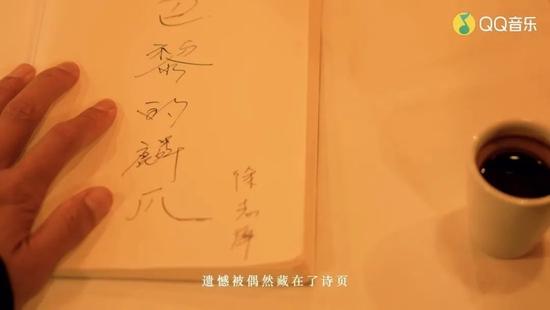 QQ音乐
巴黎的麟爪
徐志摩
遗憾被偶然藏在了诗页